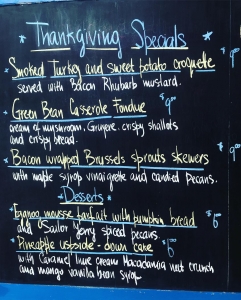 Thanksgiving Specials
Smoked Turkey and sweet potato croquette
served with Bacon Rhubarb mustard.
Green Bean Casserole Fondue
cream of mushroom, Gruyere, crispy shallots
and crispy bread.
Bacon wrapped Brussels sprouts skewers
with maple syrop vinaigrette and candied pecans.
Desserts
mousse parfait with pumpkin bread
and Sailor Jerry spiced pecans.
Pineapple upside-down cake
with Caramel lime cream Macadamia nut crunch
and mango vanilla bean syrop